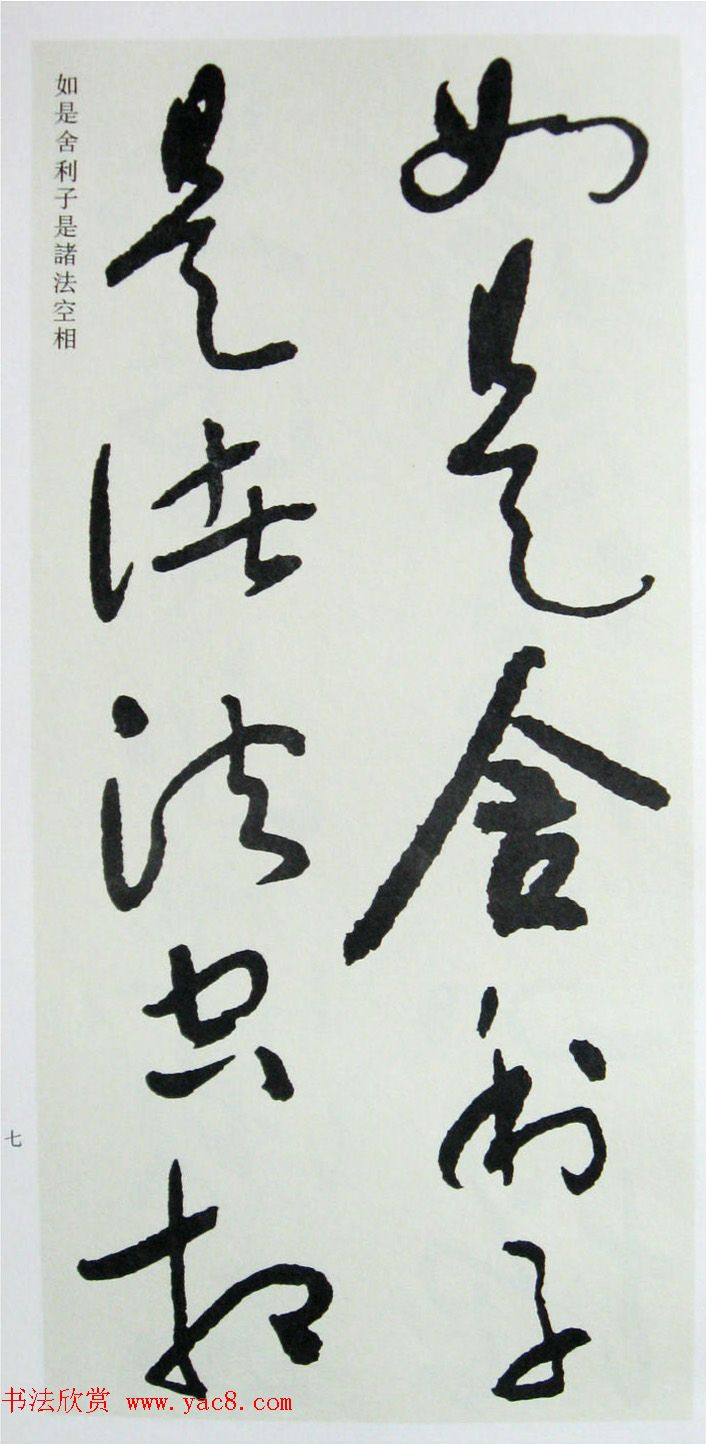 如是舍利子
是諸法空相
如是舍利子是諸法空相
七
书法欣赏 www.yac8.com